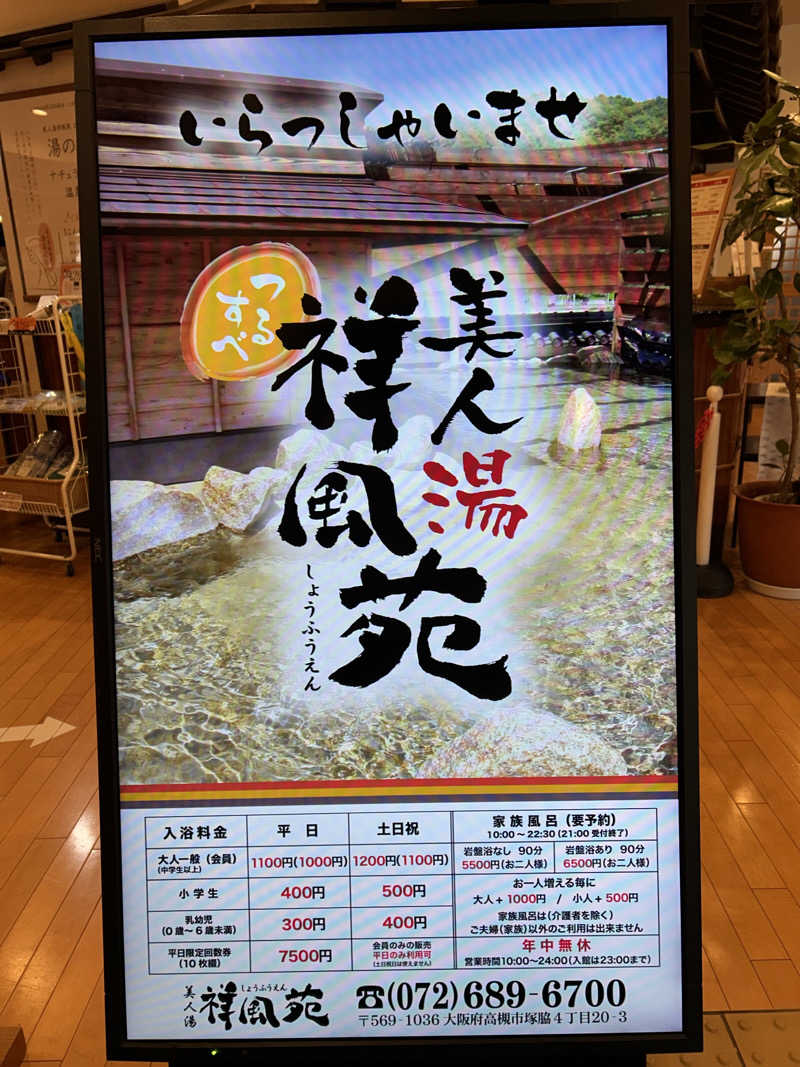 いらっしゃいませ
つるすべ
美人湯
祥風苑
しょうふうえん
入浴料金 平日 土日祝
大人一般（会員）(中学生以上) 1100円(1000円) 1200円(1100円)
小学生 400円 500円
乳幼児(0歳〜6歳未満) 300円 400円
平日限定回数券(10枚綴) 7500円 会員のみの販売 平日のみ利用可 (土日祝日は使えません)
家族風呂（要予約）
10:00〜22:30(21:00受付終了)
岩盤浴なし 90分 岩盤浴あり 90分
5500円(お二人様) 6500円(お二人様)
お一人増える毎に
大人＋1000円 / 小人＋500円
家族風呂は(介護者を除く)
ご夫婦(家族)以外のご利用は出来ません
年中無休
営業時間10:00〜24:00(入館は23:00まで)
美人湯 祥風苑 しょうふうえん
☎(072)689-6700
〒569-1036 大阪府高槻市塚脇4丁目20-3
NEC
湯の
ナチュラ